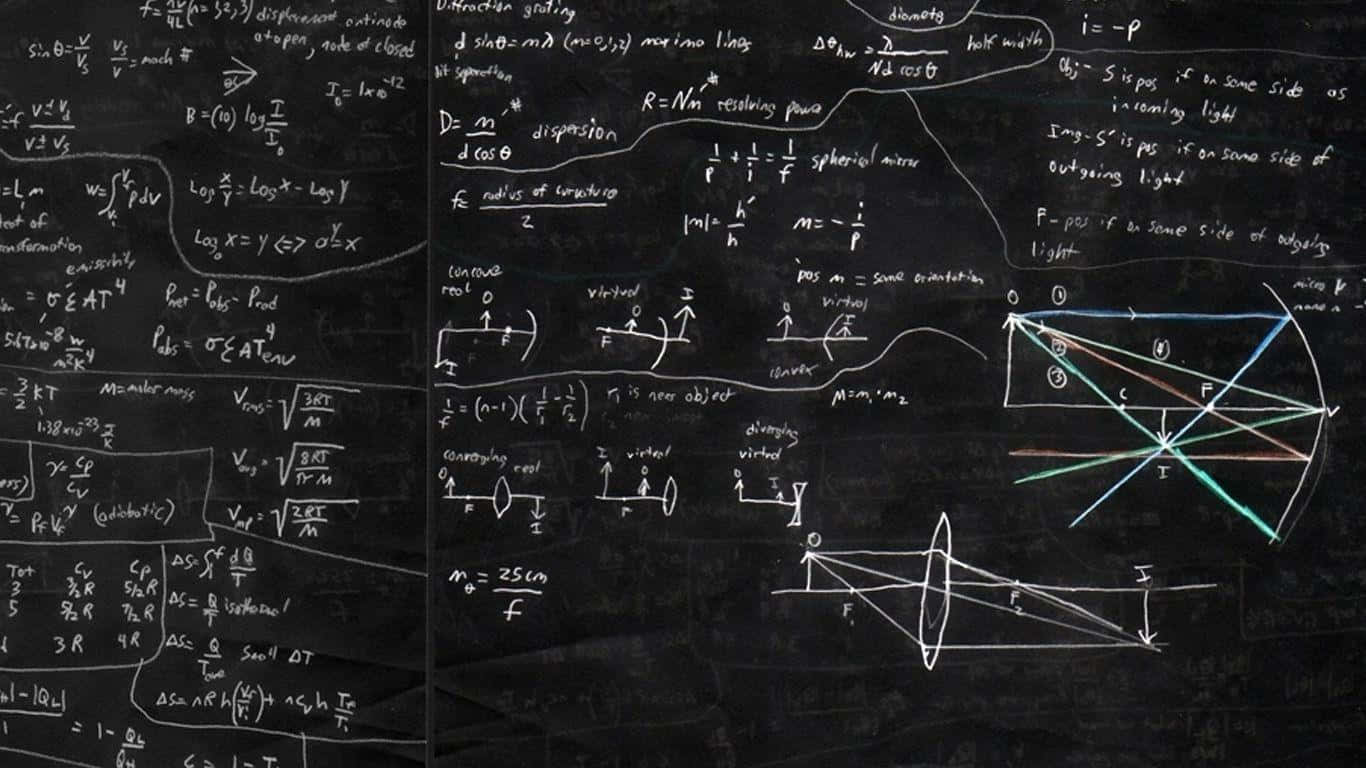 f = nv/4L (n=1,2,3) displacement antinode
at open, node at closed
sin θ = v/vs vs/v = mach #
I₀ = 1x10⁻¹²
=f v±vd/v±vs
B=(10) log I/I₀
=L m
W=∫ p dv
Log x/y = Log x - Log y
Logₐ x = y <=> aʸ=x
emissivity
= σ ε A T⁴
Pnet = Pabs - Prad
5.67x10⁻⁸ w/m²K⁴
Pabs = σ ε A T⁴env
= 3/2 kT M=molar mass
1.38x10⁻²³ J/K
Vrms = √3RT/M
γ = Cp/Cv
Vavg = √8RT/πM
= Pf Vf^γ (adiabatic)
Vmp = √2RT/M
Tot Cv Cp
3 3/2R 5/2R
5 5/2R 7/2R
3R 4R
ΔS=∫ᵢᶠ dQ/T
ΔS = Q/T isothermal
ΔS = Q/Tave small ΔT
ΔS = nR ln(Vf/Vi) + nCv ln Tf/Ti
|-|QL|
= 1 - QL/QH
Diffraction grating
d sinθ = mλ (m=0,1,2) maxima lines
Δθhw = λ/Nd cosθ half width
slit separation
R = Nm # resolving power
D = m/d cosθ # dispersion
1/p + 1/i = 1/f spherical mirror
f = radius of curvature/2
|m| = h'/h m = - i/p
pos m = same orientation
concave
real
O
F
I
virtual
O
F
I
virtual
O
I
convex
1/f = (n-1)(1/r₁ - 1/r₂) r₁ is near object
M = m₁·m₂
converging real
O
F
I
virtual
I
O
F
diverging
virtual
O
I
mθ = 25cm/f
O
F₁
F₂
I
i = -p
Obj - S is pos if on same side as
incoming light
Img - S' is pos if on same side of
outgoing light
F - pos if on same side of outgoing
light
O ① ② ③ ④
C
F
V
I